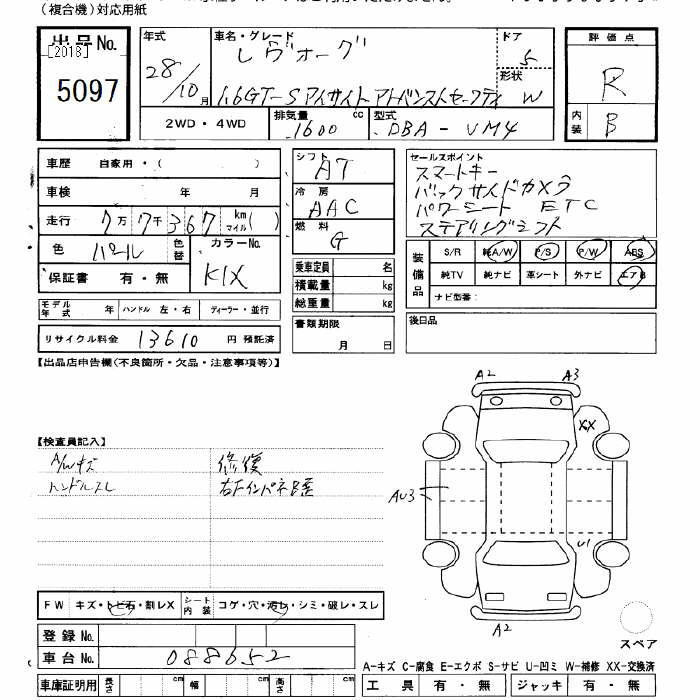 (複合機)対応用紙
出品No.
[2018]
5097
年式
28/10月
車名・グレード
レヴォーグ
1.6GT-S アイサイト アドバンストセーフティ
ドア
5
形状
W
評価点
R
内装
B
2WD・4WD
排気量
1600 cc
型式
DBA-VM4
車歴 自家用・( )
車検 年 月
走行 7万7千367 km マイル( )
色 パール 色替
カラーNo.
K1X
保証書 有・無
モデル年式 年 ハンドル 左・右 ディーラー・並行
リサイクル料金 13610 円 預託済
シフト
AT
冷房
AAC
燃料
G
乗車定員 名
積載量 kg
総重量 kg
書類期限
月 日
セールスポイント
スマートキー
バック サイドカメラ
パワーシート ETC
ステアリングシフト
装備品
S/R 純A/W P/S P/W ABS
純TV 純ナビ 革シート 外ナビ エアB
ナビ型番:
後日品
【出品店申告欄(不良箇所・欠品・注意事項等)】
【検査員記入】
A/Wキズ
ハンドルスレ
修復
右Fインパネ部歪
A2 A3
XX
AU3
U1
A2
スペア
FW キズ・トビ石・割レX シート内装 コゲ・穴・汚レ・シミ・破レ・スレ
登録No.
車台No. 088652
車庫証明用 長さ cm 幅 cm 高さ cm
A-キズ C-腐食 E-エクボ S-サビ U-凹ミ W-補修 XX-交換済
工具 有・無 ジャッキ 有・無